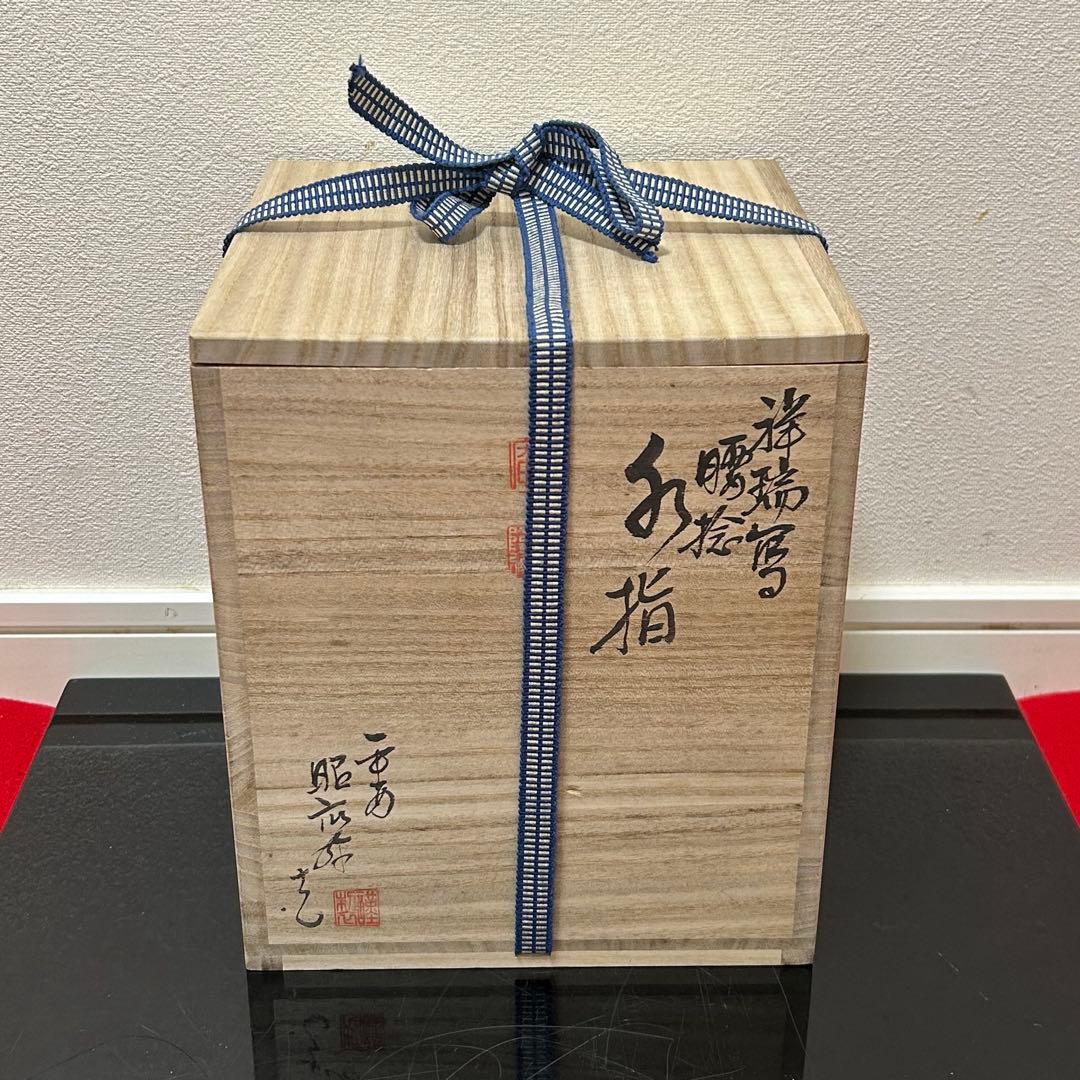 祥瑞写
腰捻
水指
平安
昭阿弥
造
謹製